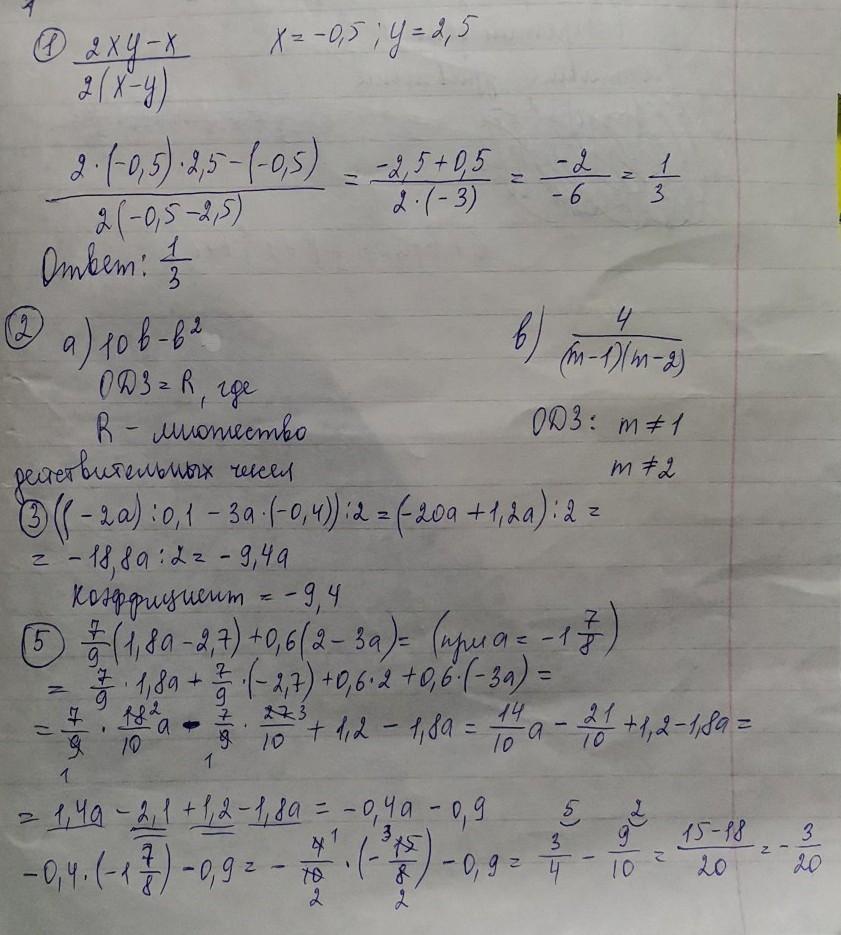 ① (2xy-x)/(2(x-y)) x=-0,5; y=2,5
(2·(-0,5)·2,5-(-0,5))/(2(-0,5-2,5)) = (-2,5+0,5)/(2·(-3)) = (-2)/(-6) = 1/3
Ответ: 1/3
② а) 10b-b² в) 4/((m-1)(m-2))
ОДЗ = R, где ОДЗ: m≠1
R - множество m≠2
действительных чисел
③ ((-2a):0,1-3a·(-0,4)):2=(-20a+1,2a):2=
= -18,8a:2= -9,4a
Коэффициент = -9,4
⑤ 7/9(1,8a-2,7)+0,6(2-3a)= (при a= -1 7/8)
= 7/9·1,8a+7/9·(-2,7)+0,6·2+0,6·(-3a)=
= 7/9·18/10a - 7/9·27/10+1,2-1,8a= 14/10a-21/10+1,2-1,8a=
= 1,4a-2,1+1,2-1,8a = -0,4a-0,9
-0,4·(-1 7/8)-0,9= -4/10·(-15/8)-0,9= 3/4-9/10= (15-18)/20= -3/20